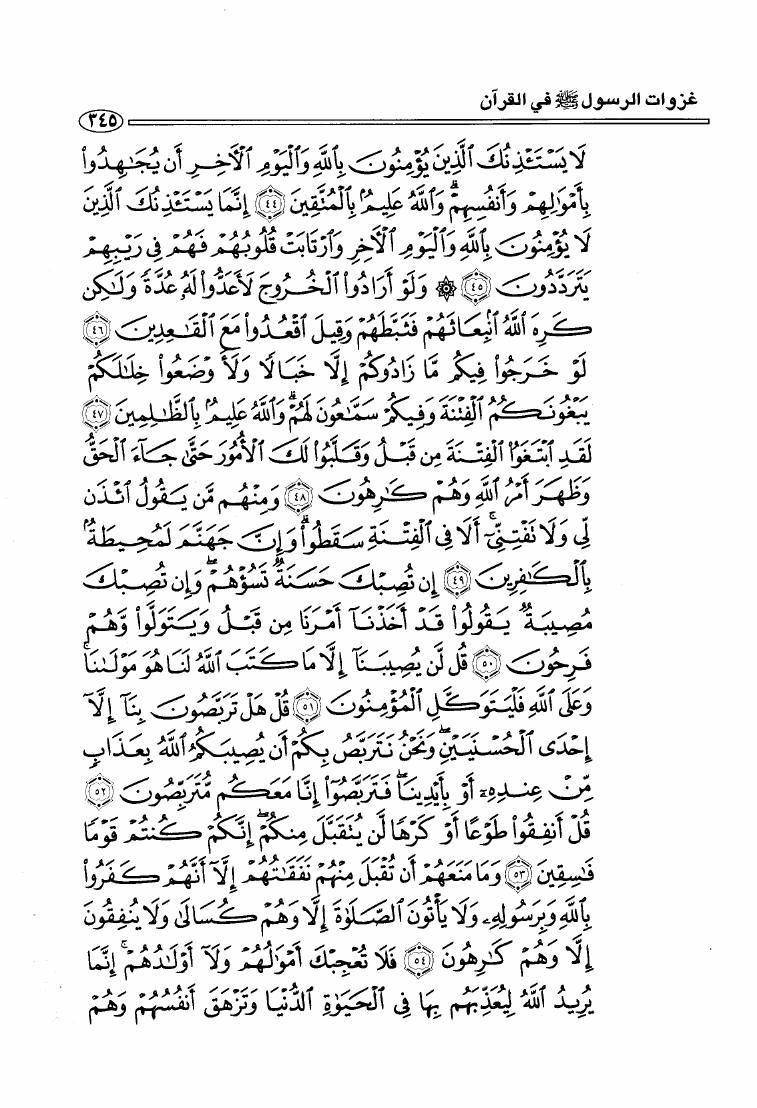 غزوات الرسول ﷺ في القرآن
٣٤٥
لَا يَسْتَـْٔذِنُكَ ٱلَّذِينَ يُؤْمِنُونَ بِٱللَّهِ وَٱلْيَوْمِ ٱلْـَٔاخِرِ أَن يُجَـٰهِدُوا۟
بِأَمْوَٰلِهِمْ وَأَنفُسِهِمْ ۗ وَٱللَّهُ عَلِيمٌۢ بِٱلْمُتَّقِينَ ﴿٤٤﴾ إِنَّمَا يَسْتَـْٔذِنُكَ ٱلَّذِينَ
لَا يُؤْمِنُونَ بِٱللَّهِ وَٱلْيَوْمِ ٱلْـَٔاخِرِ وَٱرْتَابَتْ قُلُوبُهُمْ فَهُمْ فِى رَيْبِهِمْ
يَتَرَدَّدُونَ ﴿٤٥﴾ ۞ وَلَوْ أَرَادُوا۟ ٱلْخُرُوجَ لَأَعَدُّوا۟ لَهُۥ عُدَّةً وَلَـٰكِن
كَرِهَ ٱللَّهُ ٱنۢبِعَاثَهُمْ فَثَبَّطَهُمْ وَقِيلَ ٱقْعُدُوا۟ مَعَ ٱلْقَـٰعِدِينَ ﴿٤٦﴾
لَوْ خَرَجُوا۟ فِيكُم مَّا زَادُوكُمْ إِلَّا خَبَالًا وَلَأَوْضَعُوا۟ خِلَـٰلَكُمْ
يَبْغُونَكُمُ ٱلْفِتْنَةَ وَفِيكُمْ سَمَّـٰعُونَ لَهُمْ ۗ وَٱللَّهُ عَلِيمٌۢ بِٱلظَّـٰلِمِينَ ﴿٤٧﴾
لَقَدِ ٱبْتَغَوُا۟ ٱلْفِتْنَةَ مِن قَبْلُ وَقَلَّبُوا۟ لَكَ ٱلْأُمُورَ حَتَّىٰ جَآءَ ٱلْحَقُّ
وَظَهَرَ أَمْرُ ٱللَّهِ وَهُمْ كَـٰرِهُونَ ﴿٤٨﴾ وَمِنْهُم مَّن يَقُولُ ٱئْذَن
لِّى وَلَا تَفْتِنِّىٓ ۚ أَلَا فِى ٱلْفِتْنَةِ سَقَطُوا۟ ۗ وَإِنَّ جَهَنَّمَ لَمُحِيطَةٌۢ
بِٱلْكَـٰفِرِينَ ﴿٤٩﴾ إِن تُصِبْكَ حَسَنَةٌ تَسُؤْهُمْ ۖ وَإِن تُصِبْكَ
مُصِيبَةٌ يَقُولُوا۟ قَدْ أَخَذْنَآ أَمْرَنَا مِن قَبْلُ وَيَتَوَلَّوا۟ وَّهُمْ
فَرِحُونَ ﴿٥٠﴾ قُل لَّن يُصِيبَنَآ إِلَّا مَا كَتَبَ ٱللَّهُ لَنَا هُوَ مَوْلَىٰنَا ۚ
وَعَلَى ٱللَّهِ فَلْيَتَوَكَّلِ ٱلْمُؤْمِنُونَ ﴿٥١﴾ قُلْ هَلْ تَرَبَّصُونَ بِنَآ إِلَّآ
إِحْدَى ٱلْحُسْنَيَيْنِ ۖ وَنَحْنُ نَتَرَبَّصُ بِكُمْ أَن يُصِيبَكُمُ ٱللَّهُ بِعَذَابٍ
مِّنْ عِندِهِۦٓ أَوْ بِأَيْدِينَا ۖ فَتَرَبَّصُوٓا۟ إِنَّا مَعَكُم مُّتَرَبِّصُونَ ﴿٥٢﴾
قُلْ أَنفِقُوا۟ طَوْعًا أَوْ كَرْهًا لَّن يُتَقَبَّلَ مِنكُمْ ۖ إِنَّكُمْ كُنتُمْ قَوْمًا
فَـٰسِقِينَ ﴿٥٣﴾ وَمَا مَنَعَهُمْ أَن تُقْبَلَ مِنْهُمْ نَفَقَـٰتُهُمْ إِلَّآ أَنَّهُمْ كَفَرُوا۟
بِٱللَّهِ وَبِرَسُولِهِۦ وَلَا يَأْتُونَ ٱلصَّلَوٰةَ إِلَّا وَهُمْ كُسَالَىٰ وَلَا يُنفِقُونَ
إِلَّا وَهُمْ كَـٰرِهُونَ ﴿٥٤﴾ فَلَا تُعْجِبْكَ أَمْوَٰلُهُمْ وَلَآ أَوْلَـٰدُهُمْ ۚ إِنَّمَا
يُرِيدُ ٱللَّهُ لِيُعَذِّبَهُم بِهَا فِى ٱلْحَيَوٰةِ ٱلدُّنْيَا وَتَزْهَقَ أَنفُسُهُمْ وَهُمْ